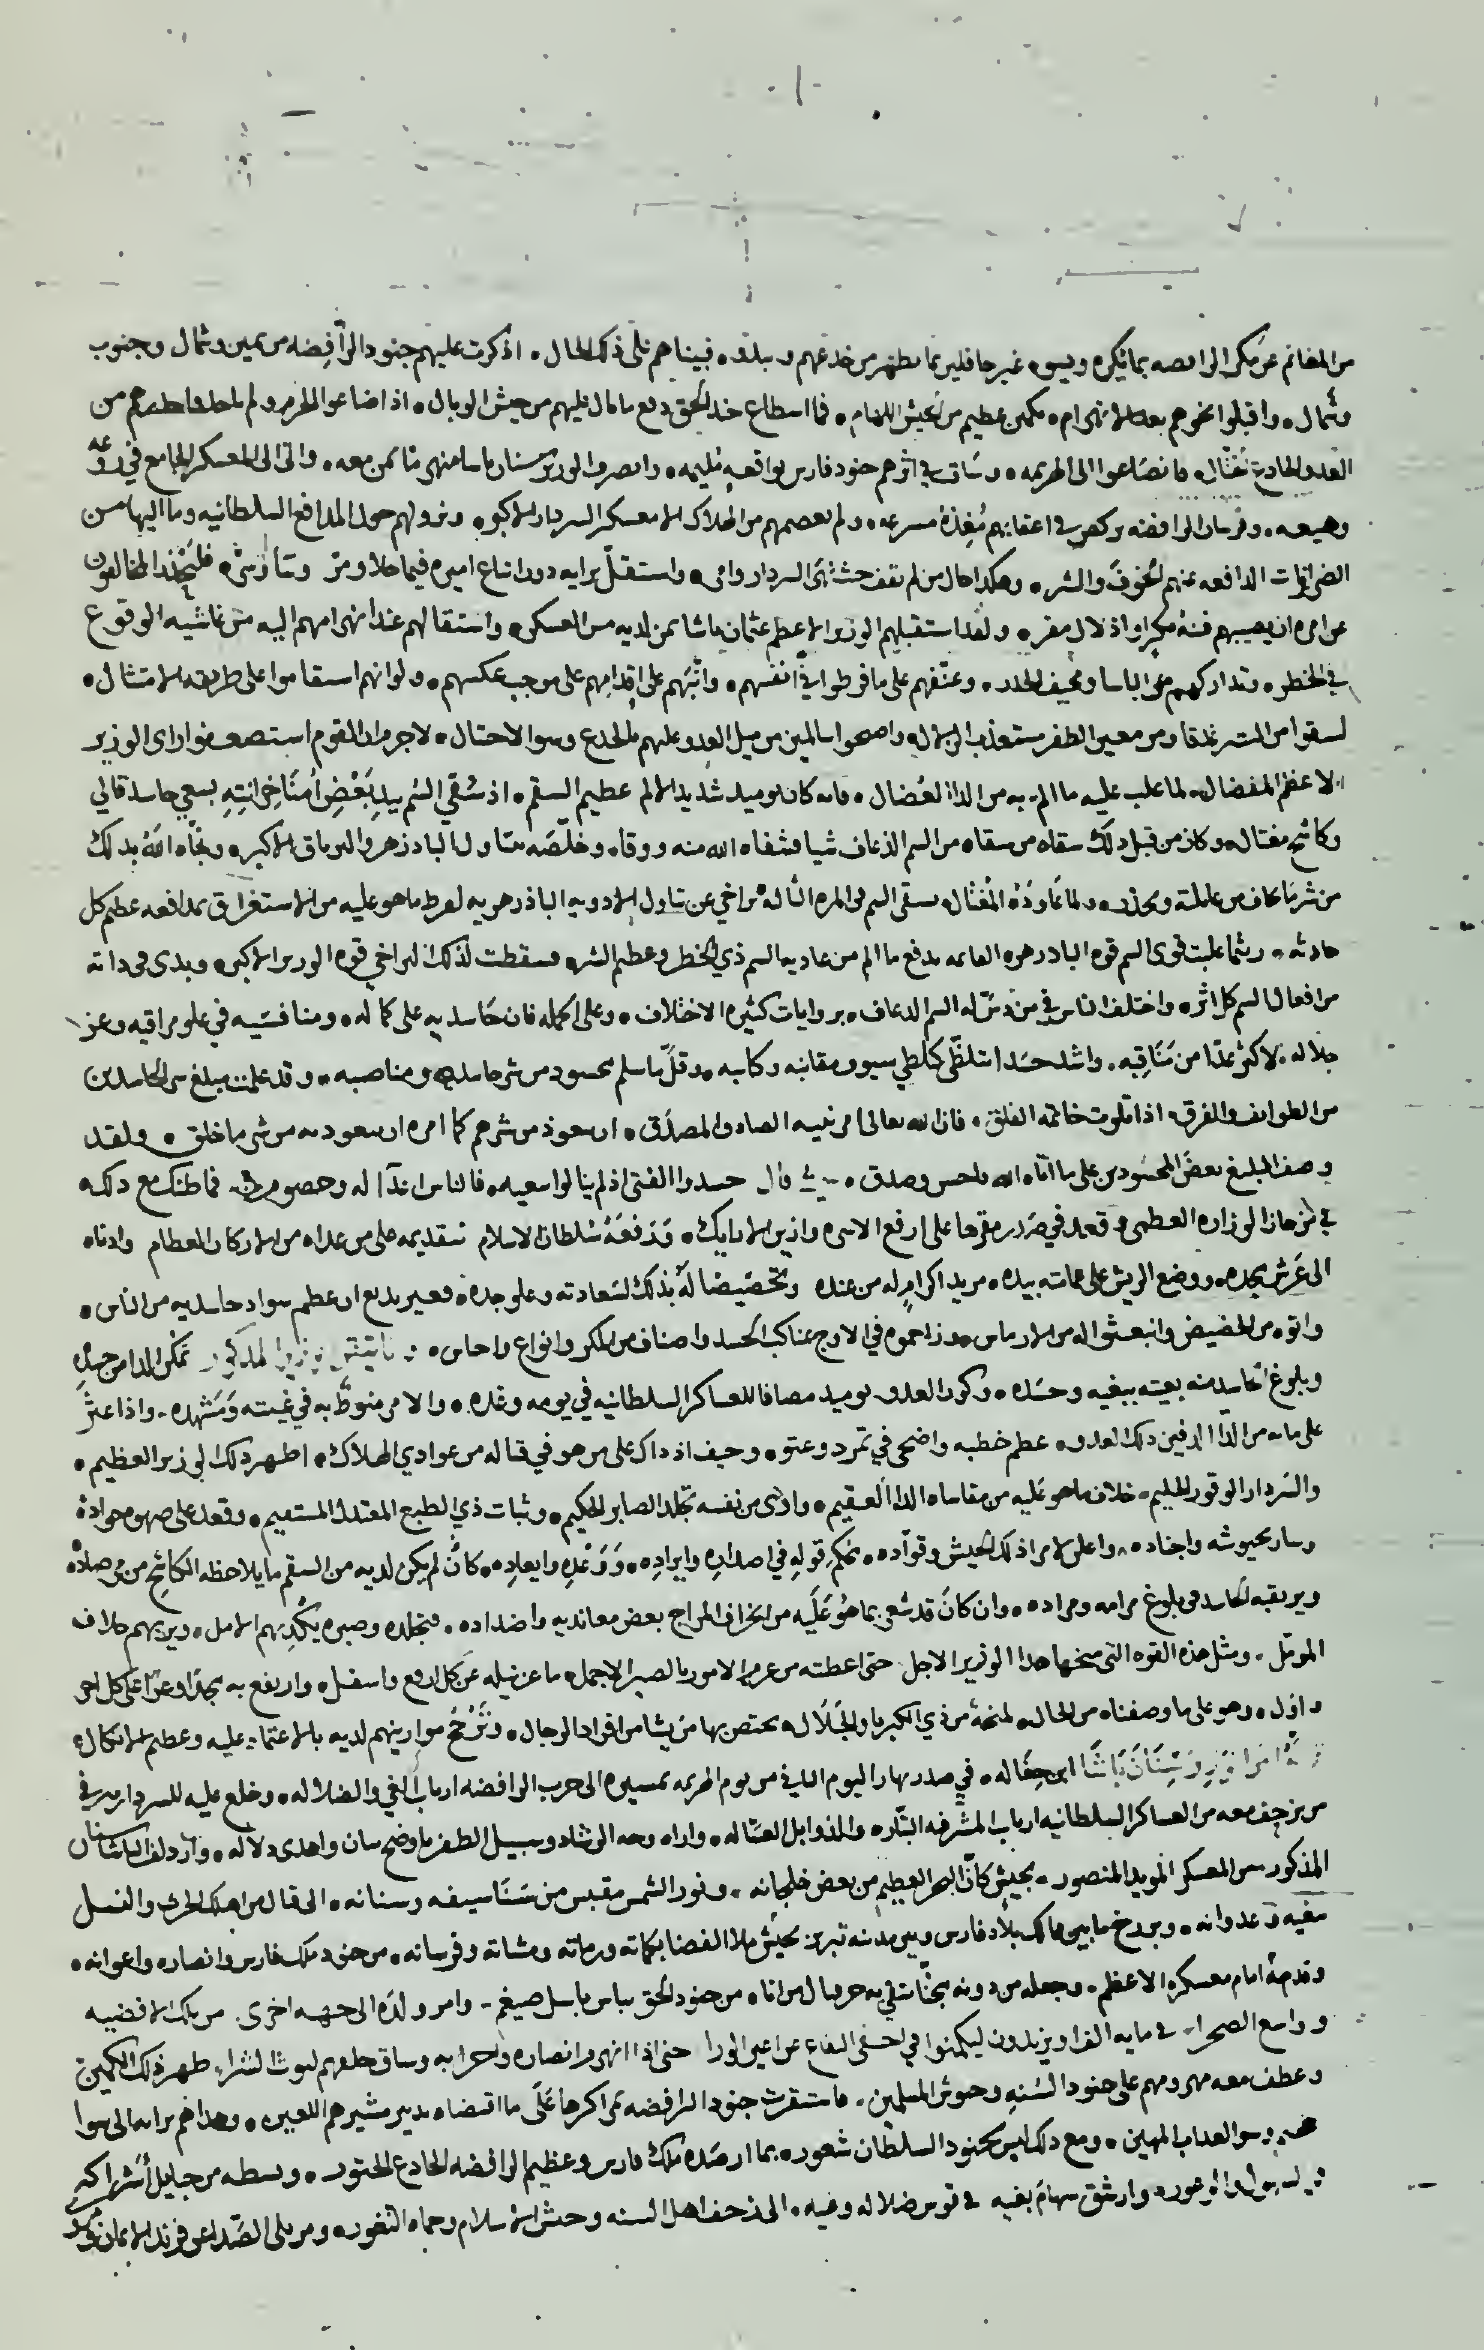 من المغانم عن مكر الرافضه بما يكره ويسوه غير حافلين بما يظهر من خدعهم ويبدوه فبينا هم على ذلك الحال اذ كرت عليهم جنود الرافضه من يمين وشمال وجنوب
وشمال واقبلوا نحوهم بعد الانهزام بكمين عظيم من الجيش اللهام فما اسطاع جند الحق دفع ما مال عليهم من جيش الوبال اذ اضاعوا الحزم ولم ياخذوا حذرهم من
العدو الخادع فانصاعوا الى الهزيمه وساق في اثرهم جنود فارس بواقعه مليمه وانصرف الوزير سنان باسا منهزما بمن معه واتى الى المعسكر الجامع في روعه
وهيعه وفرسان الرافضه تركض في اعقابهم مغذة مسرعه ولم يعصمهم من الهلاك الا معسكر السردار الاكبر ونزولهم حول المدافع السلطانيه وما اليها من
الضرابزانات الدافعه عنهم الخوف والشر وهكذا حال من لم يقف حيث نهى السردار وامر واستقل برايه دون اتباع اميره فيما حلا ومر وسا وسر فليحذر المخالفون
عن امره ان يصيبهم فتنة مكر واذلال مفر ولقد استقبلهم الوزير الاعظم عثمان باشا بمن لديه من العسكر واستقالهم عند انهزامهم اليه من غاشيه الوقوع
في الخطر وتداركهم عن الباسا ومخيف الحذر وعنفهم على ما فرطوا في انفسهم وانبهم على اقدامهم على موجب عكسهم ولو انهم استقاموا على طريقه الامتثال
لسقوا من النصر غدقا ومن معين الظفر مستعذب الزلال واصبحوا سالمين من ميل العدو عليهم بالخدع وسوا الاحتيال لاجرم ان القوم استضعفوا راى الوزير
الاعظم المفضال لما غلب عليه ما الم به من الدا العضال فانه كان يوميد شديد الالم عظيم السقم اذ سقي السم بيد بعض امنا خزانته بسعي حاسد قالي
وكاشح مغتال وكان من قبل ذلك سقاه من سقاه من السم الذعاف شيا فشفاه الله منه ووقاه وخلصه بتناول البادزهر والترياق الاكبر ونجاه الله بذلك
من شر ما يخاف من غايلته ويحذر ولما عاوده المغتال بسقي السم في المره الثالثه تراخي عن تناول الادويه الباذزهريه لفرط ما هو عليه من الاستغراق بمدافعه عظيم كل
حادثه ريثما غلبت قوى السم قوه البادزهره القايمه بدفع ما الم من عاديه السم ذي الخطر وعظيم الشر فسقطت لذلك التراخي قوه الوزير الاكبر وبدى في ذاته
من افعال السم كل اثر واختلف الناس في من دس له السم الذعاف بروايات كثيره الاختلاف وعلى الجمله فان حاسديه على كماله ومنافسيه في علو مراقيه وعز
جلاله لاكثر عدا من مناقبه واشد حسدا تتلظى كلظي سيوف مقانبه وكتايبه وقل ما سلم محسود من شر حاسديه ومناصبه وقد علمت مبلغ شر الحاسدين
من الطوايف والفرق اذا تلوت خاتمه الفلق فان الله تعالى امر نبيه الصادق المصدق ان يعوذ من شرهم كما امره ان يعوذ به من شر ما خلق ولقد
وصف البليغ بعض المحسودين على ما اتاه الله فاحسن وصدق حيث قال حسدوا الفتى اذ لم ينالوا سعيه فالناس اندآا له وخصوم فما ظنك مع ذلك
في من حاز الوزاره العظمى وقعد في صدر مقرها على ارفع الاسره وازين الارايك قد رفعه سلطان الاسلام بتقديمه على من عداه من الاركان العظام وادناه
الى عرش مجده ووضع الريش على عمامته بيده مزيد اكرام له من عنده وتخصيصا له بذلك لسعادته وعلو جده فغير بديع ان عظم سواد حاسديه من الناس
واتوه من الحضيض وانبعثوا اليه من الارماس وزاحموه في الاوج بمناكب الحسد واصناف من المكر وانواع واجناس تمكن الدا من جسده
وبلوغ الحاسد منه بغيته ببغيه وحسده وكون العدو يوميد مصافا للعساكر السلطانيه في يومه وغده والامر منوط به في غيبته ومشهده واذا عثر
على ما به من الدا الدفين ذلك العدو عظم خطبه واضحى في تمرد وعتو وخيف اذ ذاك على من هو في قتاله من عوادي الهلاك اظهر ذلك الوزير العظيم
والسردار الوقور الحليم خلاف ما هو عليه من مقاساه الدا العقيم وارى من نفسه تجلد الصابر الحكيم وثبات ذي الطبع المعتدل المستقيم وقعد على صهوه جواده
وسار بجيوشه واجناده واعلى الامر اذ ذلك لجيش وقواده بحكم قوله في اصداره وايراده ووعده وايعاده كان لم يكن لديه من السقم ما يلاحظه الكاشح من مرصاده
ويرتقبه الحاسد في بلوغ مرامه ومراده وان كان قد شعر بما هو عليه من انحراف المزاج بعض معانديه واضداده فتجلده وصبره يكذبهم الامل ويريهم خلاف
المومل ومثل هذه القوه التي منحها هذا الوزير الاجل حتى اعطته من عزم الامور بالصبر الاجمل ما عز نيله عن كل ارفع واسفل وارتفع به مجدا وعزا على كل اخر
واول وهو على ما وصفناه من الحال لمنحة من ذي الكبريا والجلال يختص بها من يشا من افراد الرجال وترجح موازينهم لديه بالاعتماد عليه وعظيم الاتكال
سنان باشا ابن جغاله في صدر نهار اليوم الثاني من يوم الهزيمه بمسيره الى حرب الرافضه ارباب الغي والضلاله وخلع عليه للسرداريه في
من يزحف معه من العساكر السلطانيه ارباب المشرفيه البتاره والذوابل العساله واراه وجه الرشاد وسبيل الظفر باوضح بيان واهدى دلاله وازدلف الباشا سنان
المذكور من المعسكر المويد المنصور بجيش كان البحر العظيم من بعض خلجانه ونور الشمس مقتبس من سنا سيفه وسنانه الى قتال من اهلك الحرث والنسل
ببغيه وعدوانه وبرزخ ما بين ممالك بلاد فارس وبين مدينه تبريز بجيش ملا الفضا بكماته ورماته ومشاته وفرسانه من جنود ملك فارس وانصاره واعوانه
وقدمه امام معسكره الاعظم وجعله من دونه من جنود الحق بباس باسل ضيغم وامر ولده الى جهه اخرى من تلك الافضيه
وواسع الصحرا في مايه الف او يزيدون ليكمنوا في اخفى البقاع عن اعين الورا حتى اذا انهزم انصاره واحزابه وساق خلفهم ليوث الشرا ظهر ذلك الكمين
وعطف معه منهزمهم على جنود السنه وجيوش المسلمين فاستقرت جنود الرافضه بمراكزها على ما اقتضاه تدبير مشيرهم اللعين وهداهم برايه الى سوا
الجحيم وسو العذاب المهين ومع ذلك ليس لجنود السلطان شعور بما ارصده ملك فارس وعظيم الرافضه الخادع الختور وبسطه من حبايل اشراكه
في السهول والوعور وارشق سهام بغيه في قوس ضلاله وغيه الى زحف اهل السنه وجيش الاسلام وحماه الثغور ومن جلى الصدا عن فرند الايمان